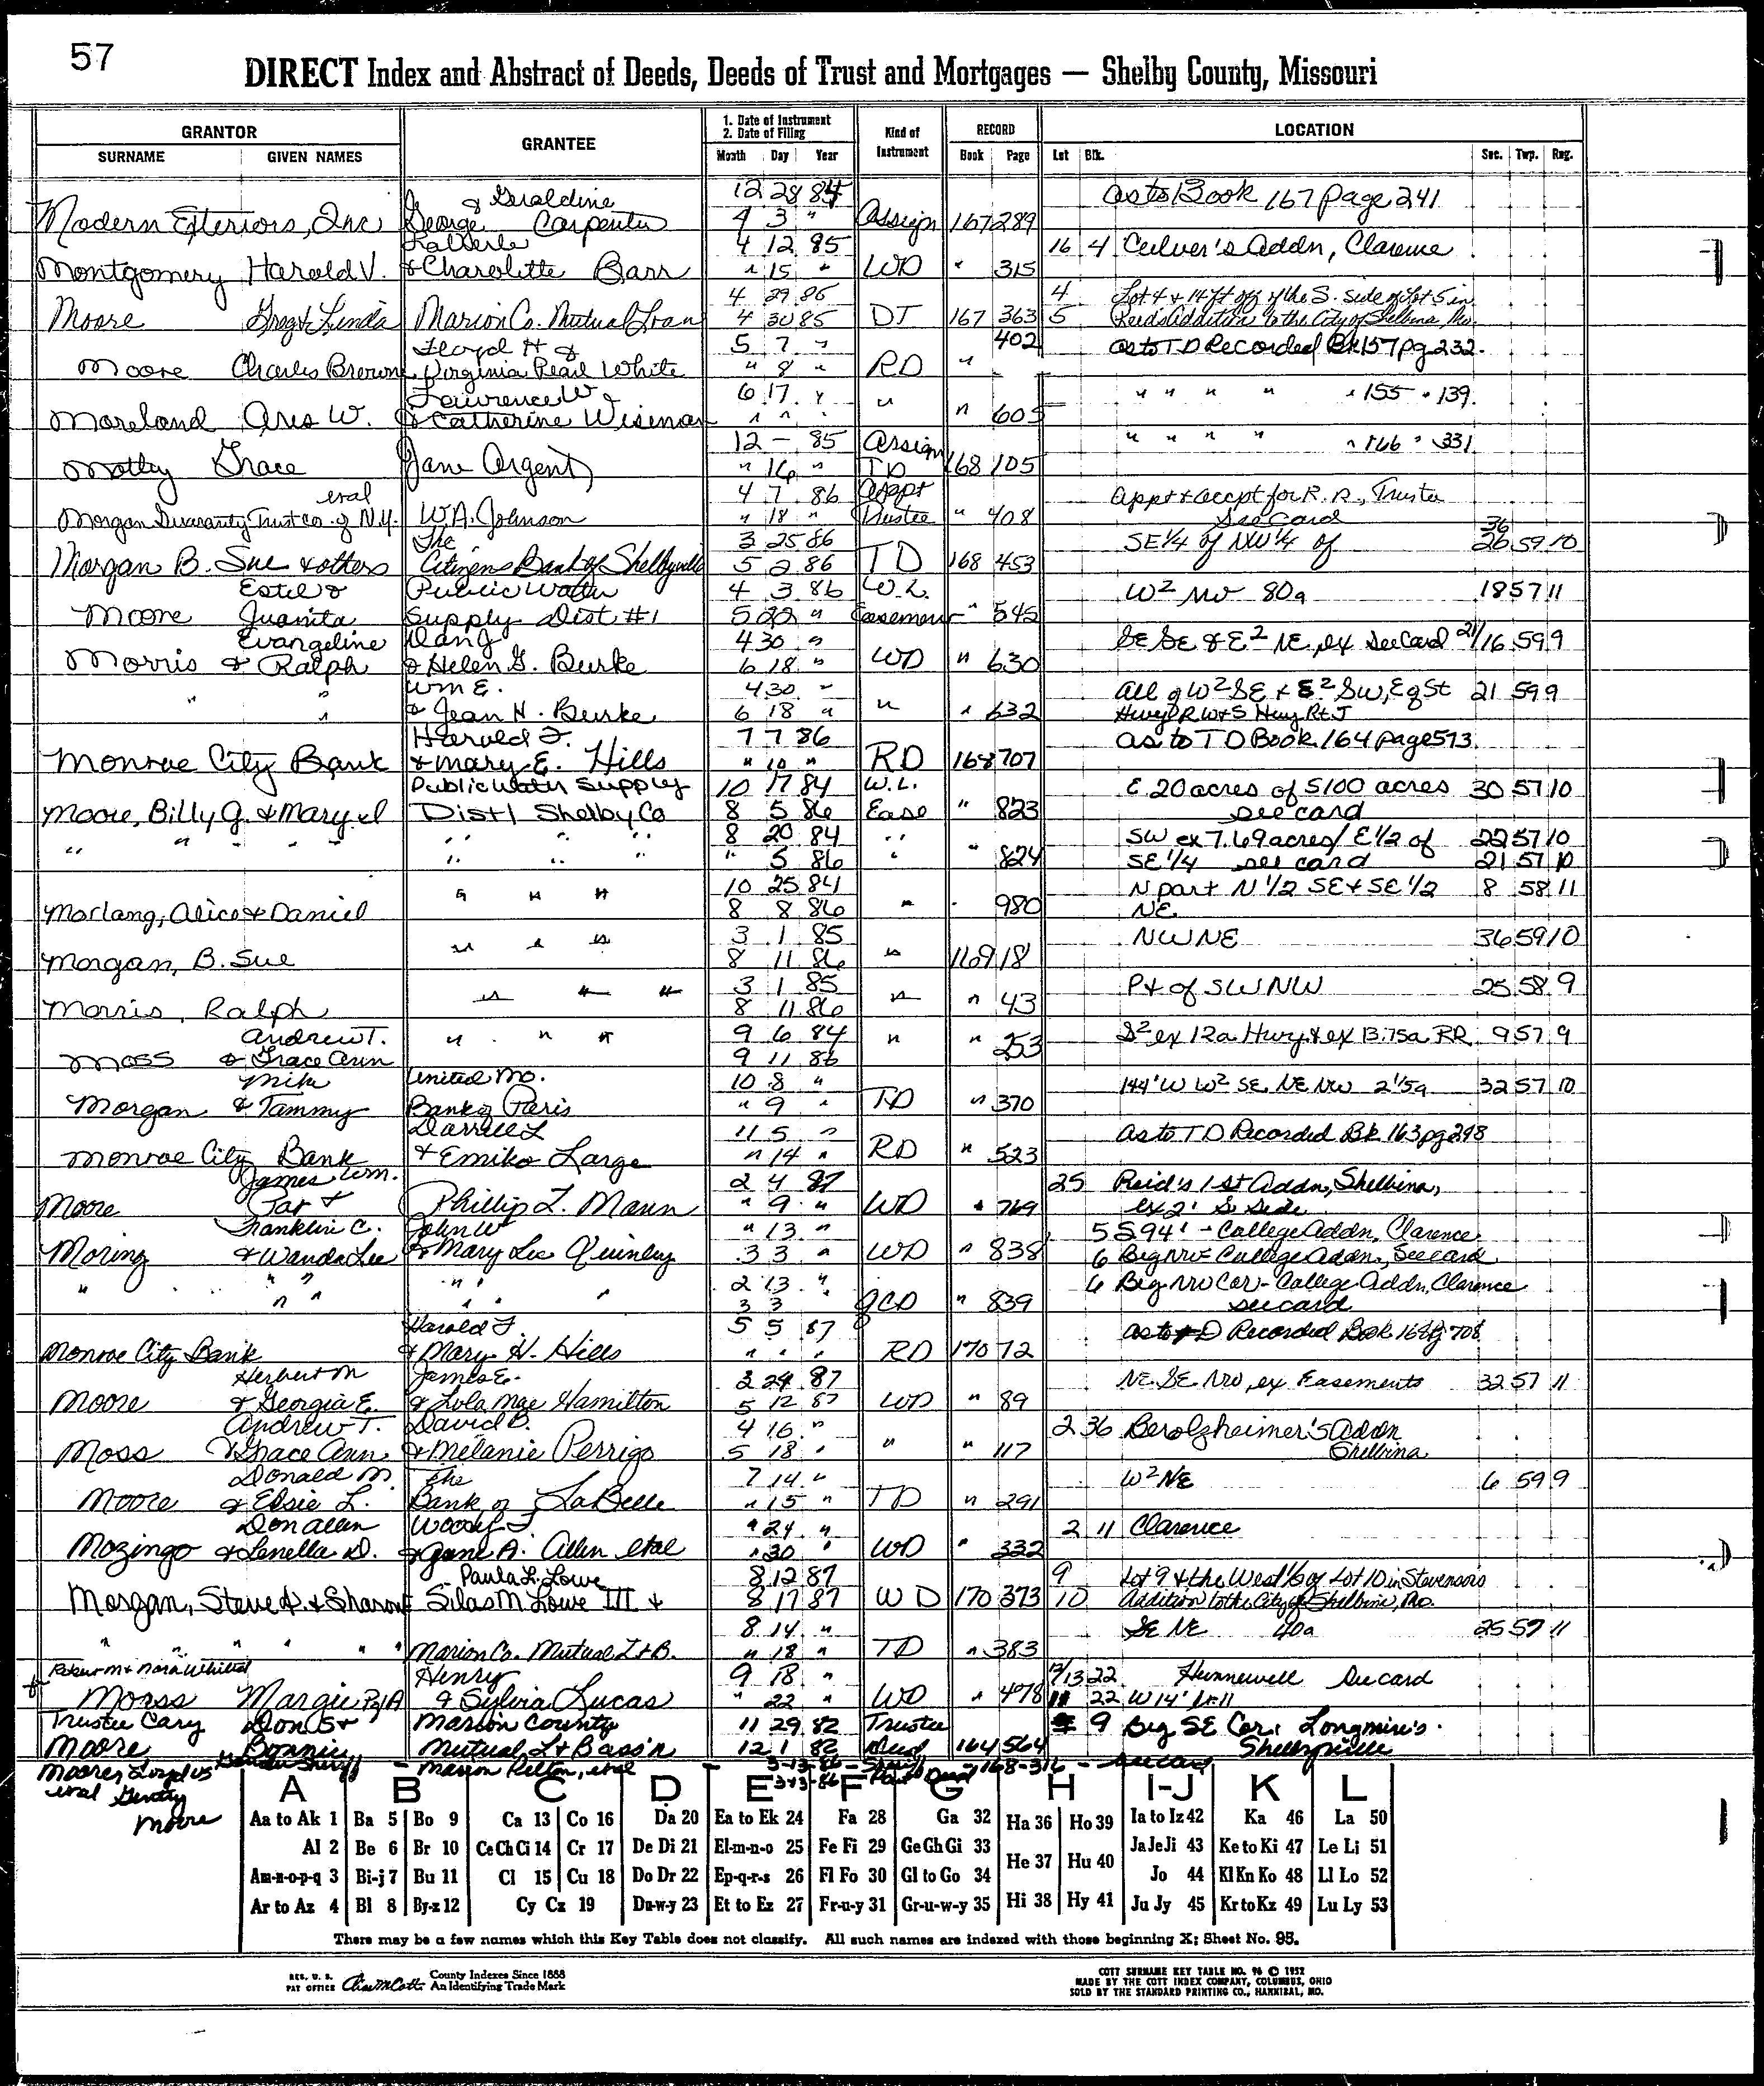 57
DIRECT Index and Abstract of Deeds, Deeds of Trust and Mortgages — Shelby County, Missouri
GRANTOR
SURNAME GIVEN NAMES
GRANTEE
1. Date of Instrument
2. Date of Filing
Month Day Year
Kind of Instrument
RECORD
Book Page
LOCATION
Lot Blk. Sec. Twp. Rng.
& Geraldine 12 28 84 as to Book 167 page 241
Modern Exteriors, Inc George Carpenter 4 3 " Assign 167 289
LaVerle 4 12 85 16 4 Culver's Addn, Clarence
Montgomery Harold V. & Charolette Barr " 15 " WD " 315
4 29 85 4 Lot 4 & 14 ft off of the S. side of Lot 5 in
Moore Greg & Linda Marion Co. Mutual Loan 4 30 85 DT 167 363 5 Reid's Addition to the City of Shelbina, Mo.
Floyd H & 5 7 " 402 as to TD Recorded Bk 157 pg 232.
Moore Charles Brown Virginia Pearl White " 8 " RD "
Lawrence W 6 17 " " " " " " 155 " 139.
Moreland Ores W. & Catherine Wiseman " " " " " 605
12 - 85 Assign " " " " " 166 " 331
Motley Grace Jane Argent " 16 " TD 168 105
eval 4 7 86 Appt Appt & accpt for R.R., Trustee
Morgan Guaranty Trust Co. of N.Y. W.A. Johnson " 18 " Trustee " 408 See Card
The 3 25 86 SE1/4 of NW1/4 of 36
Morgan B. Sue & others Citizens Bank of Shelbyville 5 2 86 TD 168 453 26 59 10
Estel & Public Water 4 3 86 W.L. W2 NW 80a 18 57 11
Moore Juanita Supply Dist. #1 5 22 " Easement " 545
Evangeline Dan J 4 30 " SE SE & E2 NE, ex See Card 21/16 59 9
Morris & Ralph & Helen G. Burke 6 18 " WD " 630
" " Wm E. 4 30 " All of W2 SE & E2 SW, E of St 21 59 9
" & Jean H. Burke 6 18 " " " 632 Hwy R W & S Hwy Rt J
Harold F. 7 7 86 as to TD Book 164 page 573
Monroe City Bank & Mary E. Hills " 10 " RD 168 707
Public Water Supply 10 17 84 W.L. E. 20 acres of 5100 acres 30 57 10
Moore, Billy G. & Mary el Dist 1 Shelby Co 8 5 86 Ease " 823 see card
" " " " " " " 8 20 84 " SW ex 7.69 acres/ E 1/2 of 22 57 10
" " " " 5 86 " " 824 SE 1/4 see card 21 57 10
" " " 10 25 84 N part N 1/2 SE & SE 1/2 8 58 11
Morlang, Alice & Daniel 8 8 86 " " 980 NE
" " " 3 1 85 NW NE 36 59 10
Morgan, B. Sue 8 11 86 " 169 18
" " " 3 1 85 Pt of SW NW 25 58 9
Morris, Ralph 8 11 86 " " 43
Andrew T. " " " 9 6 84 " " S2 ex 12a Hwy & ex 13.75a RR 9 57 9
Moss & Grace Ann 9 11 86 253
Mike United Mo. 10 8 " 144' W W2 SE NE NW 2 1/5a 32 57 10
Morgan & Tammy Bank of Paris " 9 " TD " 370
Darrell L 11 5 " as to TD Recorded Bk 163 pg 298
Monroe City Bank & Emiko Large " 14 " RD " 523
James Wm. 2 4 87 25 Reid's 1st Addn, Shelbina,
Moore Pat & Phillip L. Mann " 9 " WD " 769 ex 2' S Side
Franklin C. John W " 13 " 5 S 94' - College Addn, Clarence
Moring & Wanda Lee & Mary Lee Quinley 3 3 " WD " 838 6 Beg NW College Addn, See card
" " " " " 2 13 " 6 Beg NW Cor - College Addn, Clarence
" " " " " 3 3 " QCD " 839 see card
Harold F 5 5 87 as to TD Recorded Book 168 Pg 708
Monroe City Bank & Mary H. Hills " " " RD 170 72
Herbert M James E. 3 24 87 NE SE NW, ex Easements 32 57 11
Moore & Georgia E. & Lola Mae Hamilton 5 12 87 WD " 89
Andrew T. David B. 4 16 " 2 36 Berolzheimer's Addn
Moss & Grace Ann & Melanie Perrigo 5 18 " " " 117 Shelbina
Donald M The 7 14 " W2 NE 6 59 9
Moore & Elsie L. Bank of LaBelle " 15 " TD " 291
Don Allen Woody F " 24 " 2 11 Clarence
Mozingo & Lenella D. & Jane A. Allen etal " 30 " WD " 332
Paula L. Lowe 8 12 87 9 Lot 9 & the West 1/6 of Lot 10 in Stevenson's
Morgan, Steve A. & Sharon Silas M Lowe III & 8 17 87 WD 170 373 10 Addition to the City of Shelbina, Mo.
" " " " 8 14 " SE NE 40a 25 57 11
Marion Co. Mutual L & B. " 18 " TD " 383
Robert M & Nora Whited Henry 9 18 " 12/13 22 Hunnewell See card
& Morss Margie By PA & Sylvia Lucas " 22 " WD " 478 11 22 W 14' Lt 11
Trustee Cary Don S & Marion County 11 29 82 Trustee 9 Beg SE Cor. Longmire's
Moore Bonnie Mutual L & B ass'n 12 1 82 Deed 164 564 Shelbyville
Moore, Loyd vs Sheriff - Marion Pelton, etal - 3-13-86 - 168-316 - see card
eval Gentry 3-13-86 Deed
Moore
A B C D E F G H I-J K L
Aa to Ak 1 Ba 5 Bo 9 Ca 13 Co 16 Da 20 Ea to Ek 24 Fa 28 Ga 32 Ha 36 Ho 39 Ia to Iz 42 Ka 46 La 50
Al 2 Be 6 Br 10 Ce Ch Ci 14 Cr 17 De Di 21 El-m-n-o 25 Fe Fi 29 Ge Gh Gi 33 He 37 Hu 40 Ja Je Ji 43 Ke to Ki 47 Le Li 51
Am-n-o-p-q 3 Bi-j 7 Bu 11 Cl 15 Cu 18 Do Dr 22 Ep-q-r-s 26 Fl Fo 30 Gl to Go 34 Jo 44 Kl Kn Ko 48 Ll Lo 52
Ar to Az 4 Bl 8 By-z 12 Cy Cz 19 Du-w-y 23 Et to Ez 27 Fr-u-y 31 Gr-u-w-y 35 Hi 38 Hy 41 Ju Jy 45 Kr to Kz 49 Lu Ly 53
There may be a few names which this Key Table does not classify. All such names are indexed with those beginning X; Sheet No. 95.
REG. U. S. PAT OFFICE County Indexes Since 1888
An Identifying Trade Mark
COTT SURNAME KEY TABLE NO. 96 © 1952
MADE BY THE COTT INDEX COMPANY, COLUMBUS, OHIO
SOLD BY THE STANDARD PRINTING CO., HANNIBAL, MO.